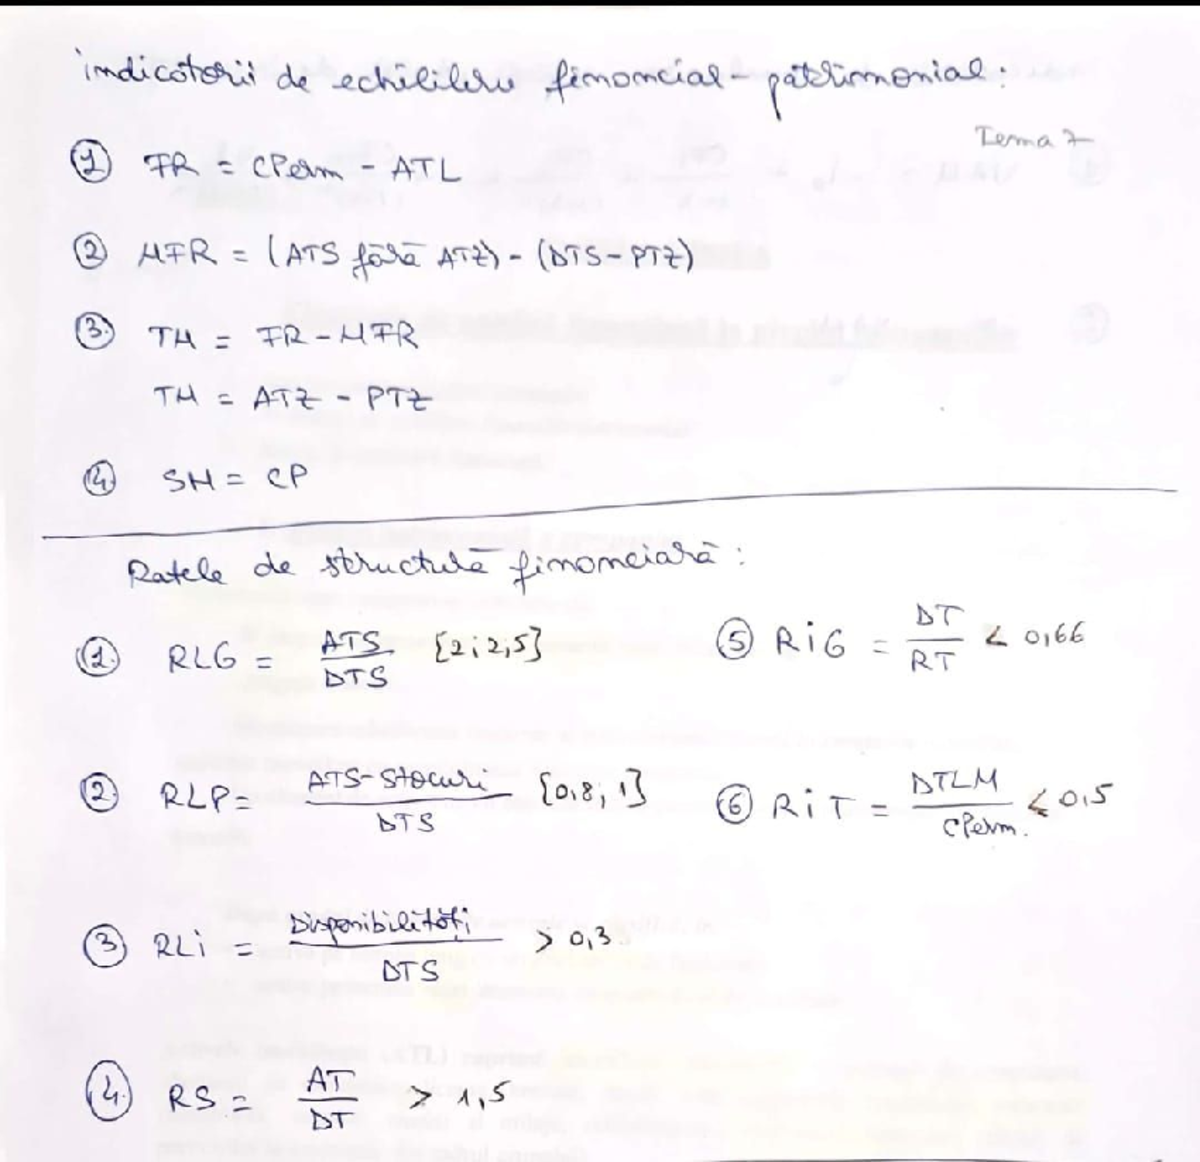 indicatorii de echilibru financiar-patrimonial:
Tema 7
① FR = CPerm - ATL
② NFR = (ATS fără ATZ) - (DTS-PTZ)
③ TN = FR-NFR
TN = ATZ - PTZ
④ SN = CP
Ratele de structură financiară:
① RLG = ATS/DTS {2; 2,5}
② RLP = ATS-Stocuri/DTS {0,8; 1}
③ RLi = Disponibilități/DTS > 0,3
④ RS = AT/DT > 1,5
⑤ RiG = DT/RT < 0,66
⑥ RiT = DTLM/CPerm. < 0,5